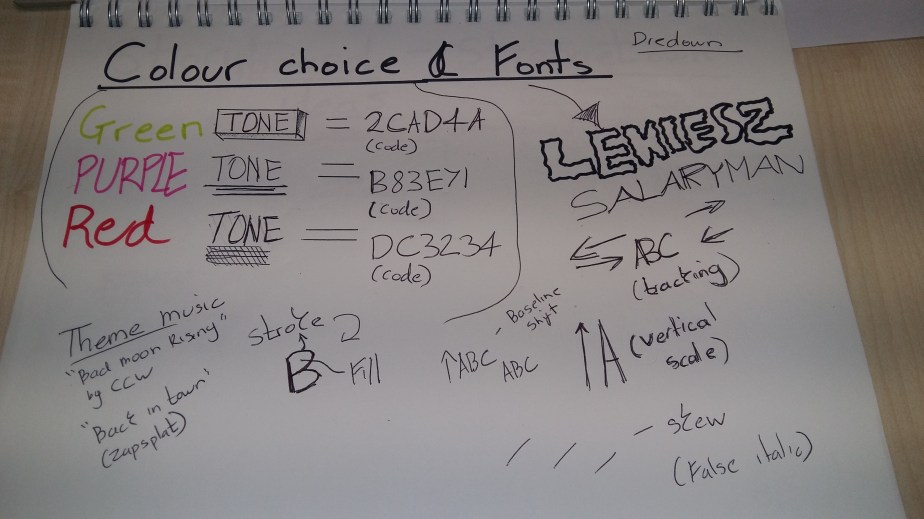 Colour choice & Fonts
Diedown
Green TONE = 2CAD4A
(code)
PURPLE TONE = B83E71
(code)
Red TONE = DC3234
(code)
LEKIESZ
SALARYMAN
ABC
(tracking)
Theme music
"Bad moon Rising"
by CCW
"Back in town"
(zapsplat)
stroke
B Fill
Baseline
shift
ABC ABC
A (vertical
scale)
skew
(False italic)